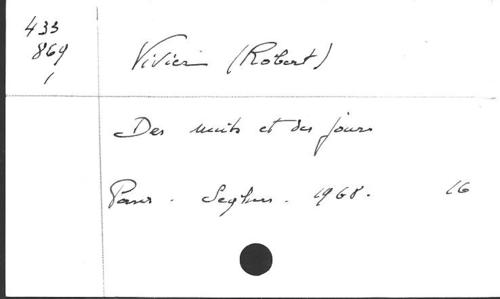 433
869
1
Vivier (Robert)
Des nuits et des jours
Paris. Seghers. 1968. 16